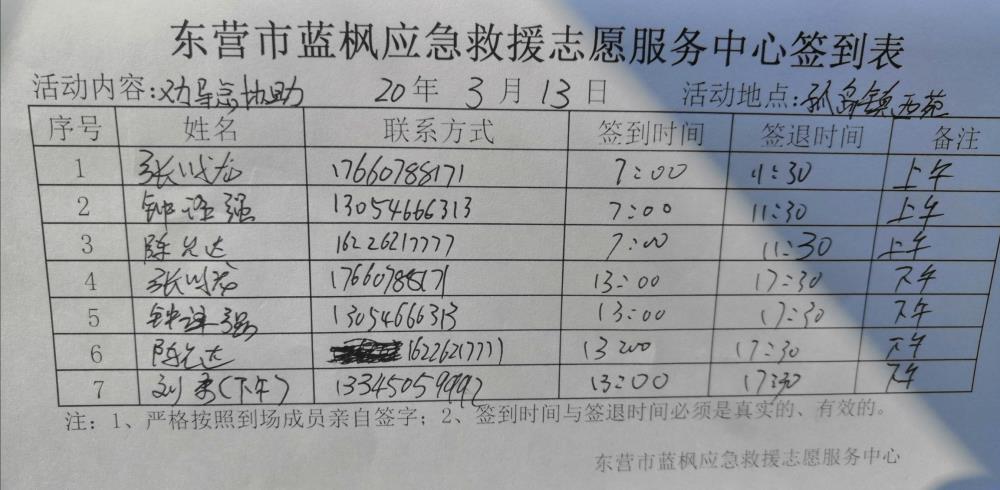 东营市蓝枫应急救援志愿服务中心签到表
活动内容:劝导点协助 20年3月13日 活动地点:孤岛镇西苑
序号 姓名 联系方式 签到时间 签退时间 备注
1 张 17660788171 7:00 11:30 上午
2 钟 强 13054666313 7:00 11:30 上午
3 陈允达 16226217777 7:00 11:30 上午
4 张 17660788171 13:00 17:30 下午
5 钟 强 13054666313 13:00 17:30 下午
6 陈允达 16226217777 13:00 17:30 下午
7 刘勇(下午) 13345059992 13:00 17:30 下午
注:1、严格按照到场成员亲自签字;2、签到时间与签退时间必须是真实的、有效的。
东营市蓝枫应急救援志愿服务中心